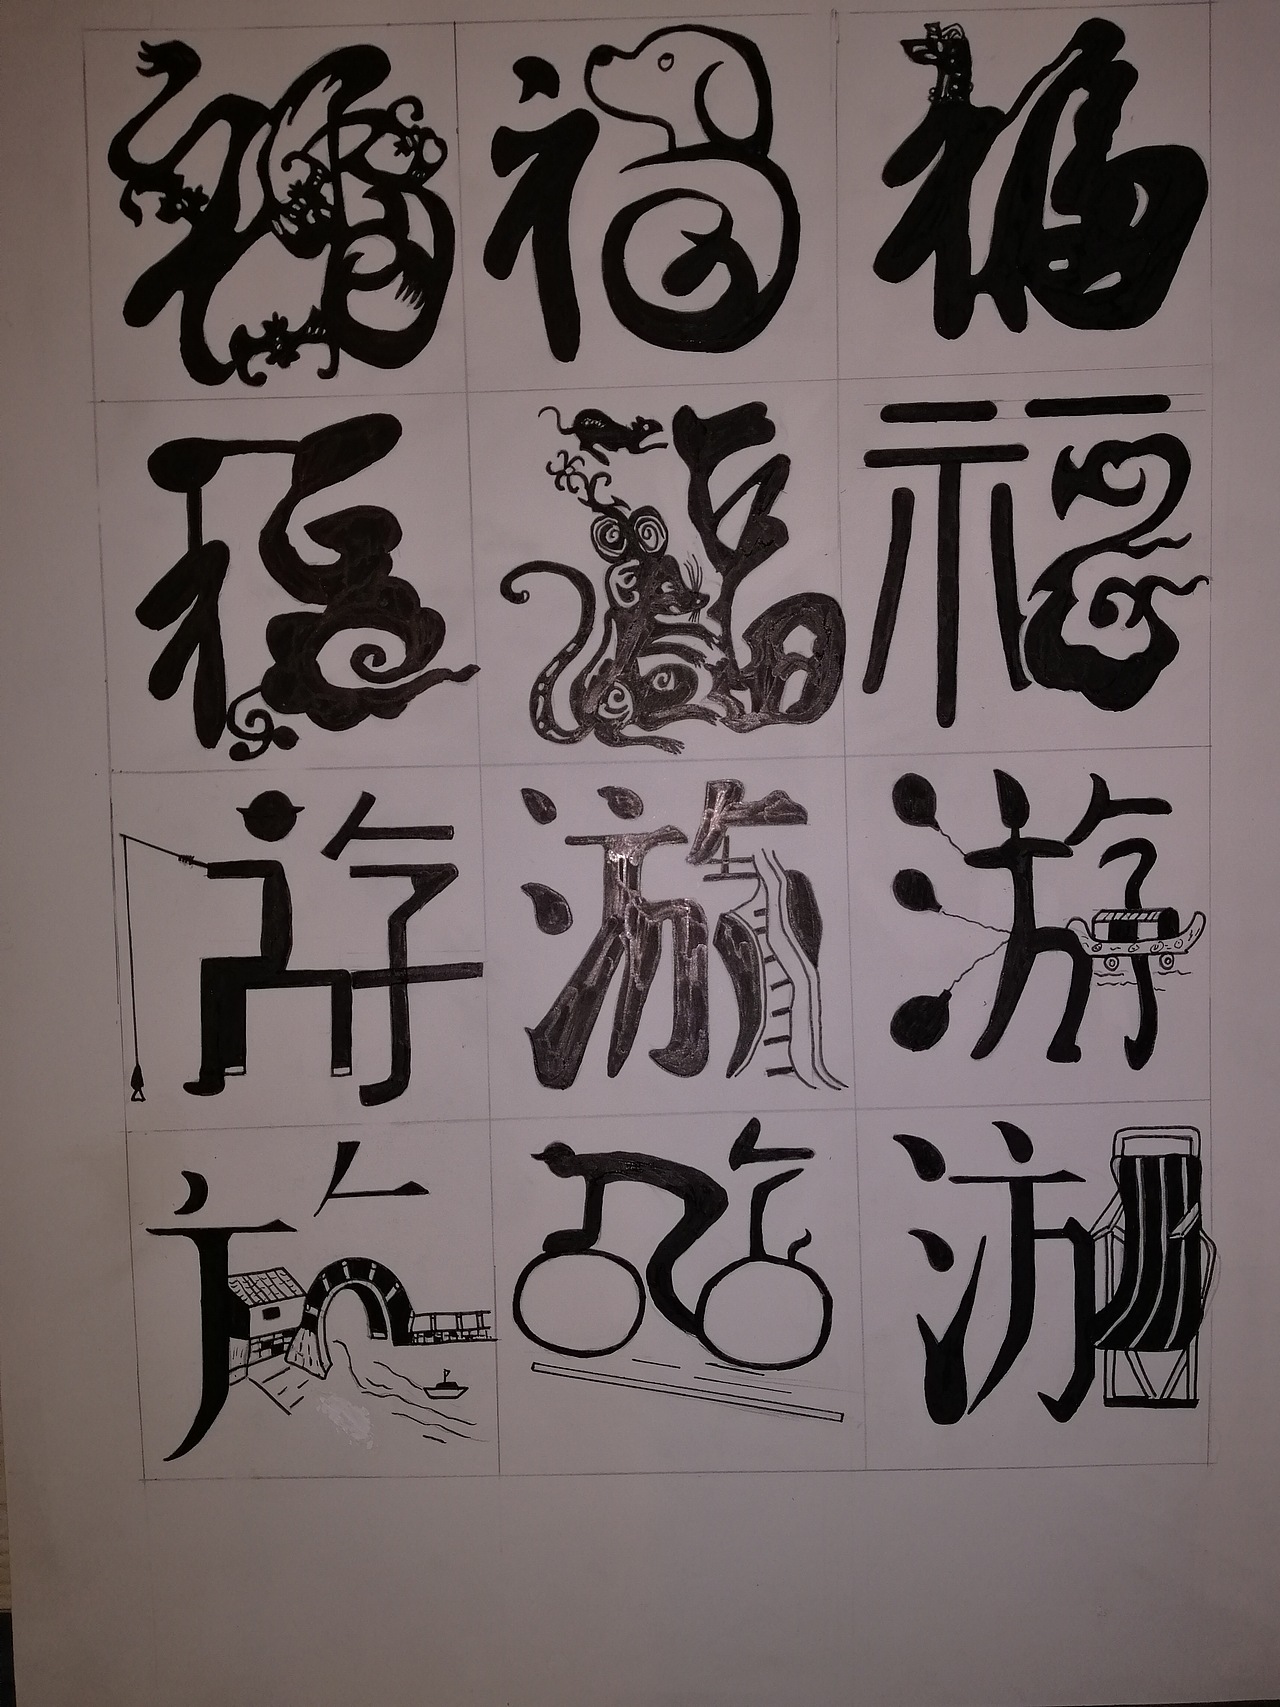 福 福 福
福 福 福
游 游 游
游 游 游